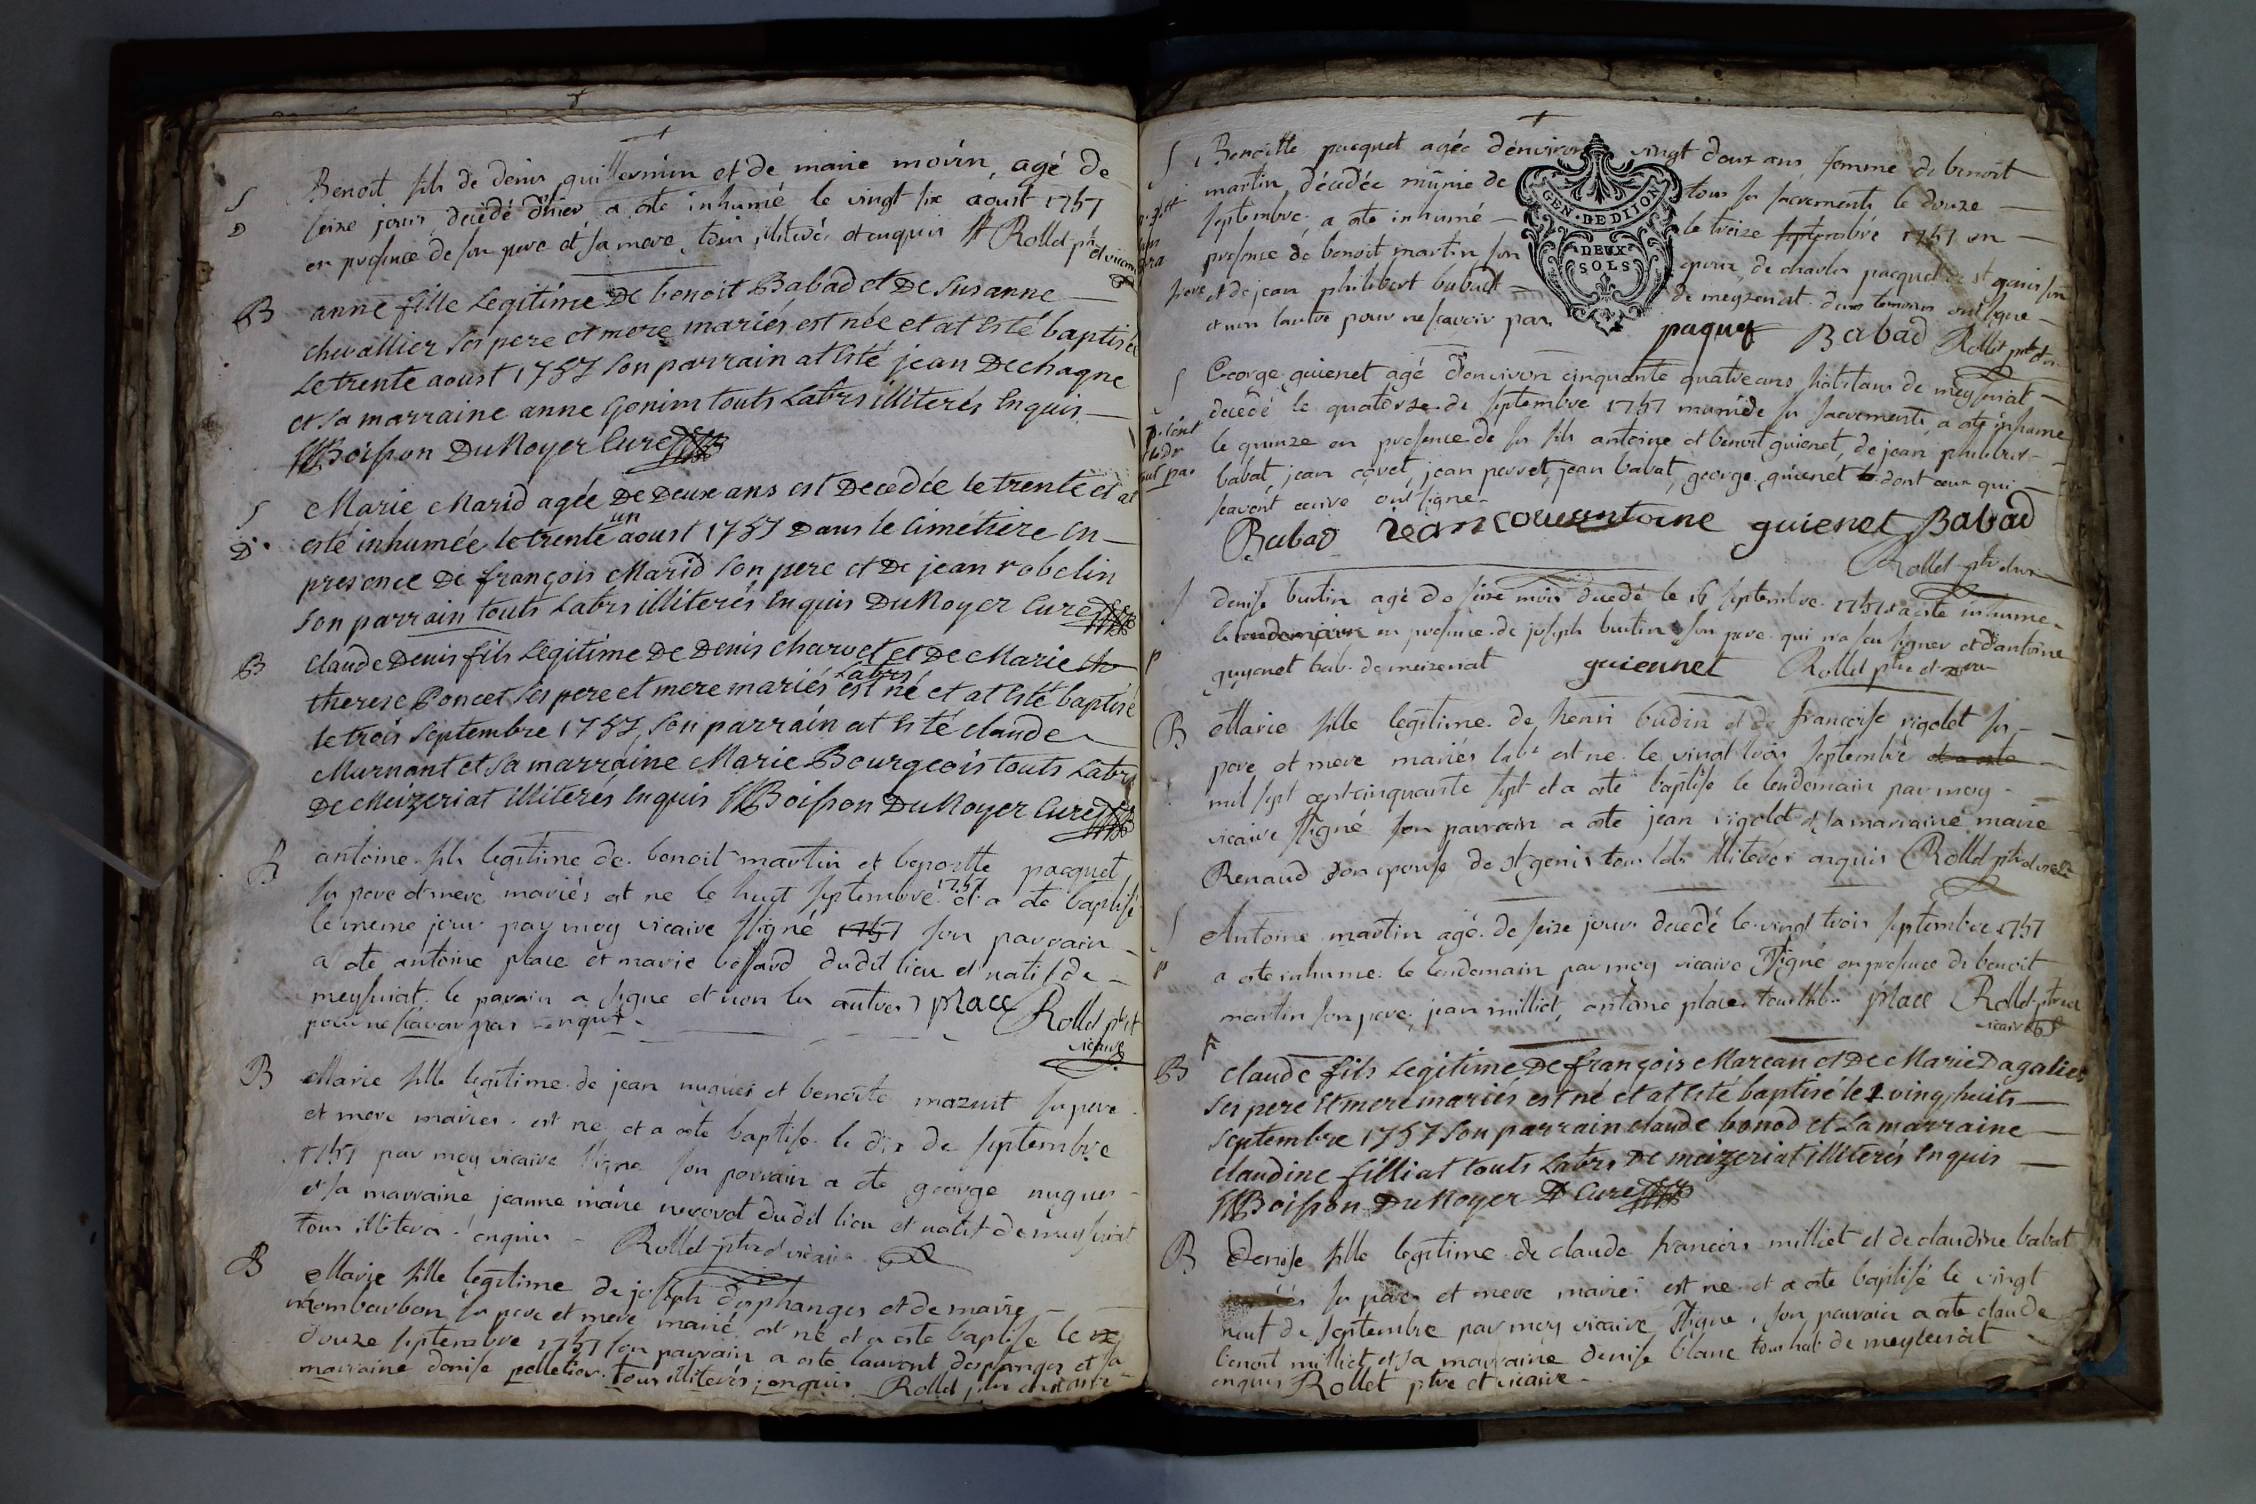 S Benoit fils de denis guillermin et de marie morin, agé de
D seize jours, decedé d'hier a ete inhumé le vingt six aoust 1757
en presence de son pere et sa mere, tous illiterés et enquis Rollet ptre et vicaire
B anne fille Legitime De benoit Babad et De Susanne
chevallier ses pere et mere mariés est née et at Esté baptisée
Le trente aoust 1757 son parrain at Esté jean Dechagne
et sa marraine anne Gonim touts Labrs illiterés Enquis
Boisson Du Noyer Curé
S Marie Marid agée De Deux ans est Decedée le trente et at
D esté inhumée le trente un aoust 1757 Dans le Cimetiere En
presence De françois Marid son pere et De jean robelin
son parrain touts Labrs illiterés Enquis Du Noyer Curé
B claude Denis fils Legitime De Denis Charvet et De Marie
therese Poncet ses pere et mere mariés Labrs est né et at Esté baptisé
le trois Septembre 1757, son parrain at Esté claude
Murnant et sa marraine Marie Bourgeois touts Labrs
De Meizeriat illiterés Enquis Boisson Du Noyer Curé
B antoine fils legitime de benoit martin et benoitte pacquet
ses pere et mere mariés est ne le huit septembre 1757 et a ete baptisé
le meme jour par moy vicaire ssigné 1757 son parrain
a ete antoine place et marie dudit lieu et natif de
le parain a signe et non les autres place
pour ne sçavoir pas enquis Rollet ptre et
vicaire
B Marie fille legitime de jean nugues et benoite mazuit ses pere
et mere maries est ne et a ete baptise le dix de septembre
1757 par moy vicaire ssigne son parrain a ete george nugues
et sa marraine jeanne marie dudit lieu et natif de
tous illiteres enquis Rollet ptre et vicaire
B Marie fille legitime de joseph desphanges et de marie
ses pere et mere marié est né et a ete baptise le
douze septembre 1757 son parrain a ete laurent desphanges et sa
marraine denise pelletier tous illiterés enquis Rollet ptre et vicaire
S Benoitte pacquet agée d'environ vingt deux ans femme de benoit
martin, décedée munie de tous ses sacrements le douze
septembre a ete inhumé le treize septembre 1757 en
presence de benoit martin son epoux, de charles pacquet de st genis son
frere et de jean philibert babad de meyzeriat dont ont signe
et non lautre pour ne scavoir pas
paquet Babad Rollet ptre et
S George guienet agé d'environ cinquante quatre ans habitans de
decedé le quatorze de septembre 1757 muni de ses sacrements a ete inhumé
le quinze en presence de ses fils antoine et benoit guienet, de jean philibert
babat, jean covet, jean perret, jean babat, george guienet dont ceux qui
scavent ecrire ont signe
Babad antoine guienet Babad
Rollet ptre et
S denise burtin agé de seize mois decedé le 16 septembre 1757 a ete inhume
le lendemain en presence de joseph burtin son pere qui n'a seu signer et d'antoine
guyenet hab. de meizeriat guiennet Rollet ptre et
B Marie fille legitime de henri budin et de francoise rigolet ses
pere et mere mariés labr est ne le vingt trois septembre et a ete
mil sept cent cinquante sept et a ete baptise le lendemain par moy
vicaire ssigné son parrain a ete jean rigolet et sa marraine marie
Renaud son epouse de st genis tous labr illiterés enquis Rollet ptre et vicaire
S Antoine martin agé de seize jours decedé le vingt trois septembre 1757
a ete inhume le lendemain par moy vicaire ssigné en presence de benoit
martin son pere, jean milliet, antoine place tous place Rollet ptre et
vicaire
B claude fils Legitime De françois Mareau et De Marie Dagalier
ses pere et mere mariés est né et at Esté baptisé le vingt huits
Septembre 1757 son parrain claude bonod et La marraine
claudine filliat touts Labrs De meizeriat illiterés Enquis
Boisson Du Noyer Curé
B Denise fille legitime de claude francois milliet et de claudine babat
ses pere et mere mariés est ne et a ete baptisé le vingt
neuf de septembre par moy vicaire ssigne, son parrain a ete claude
benoit milliet et sa marraine denise blanc tous hab de
enquis Rollet ptre et vicaire
GEN · DE DIJON
DEUX
SOLS